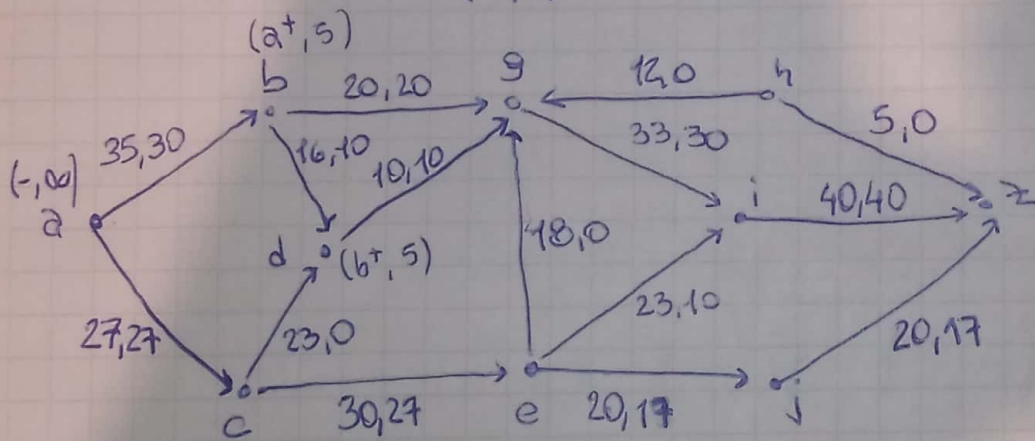 (a+, 5)
b
20,20
g
12,0
h
35,30
16,10
10,10
33,30
5,0
(-,∞)
a
i
40,40
z
d
(b+, 5)
18,0
27,27
23,0
23,10
20,17
c
30,27
e
20,17
j